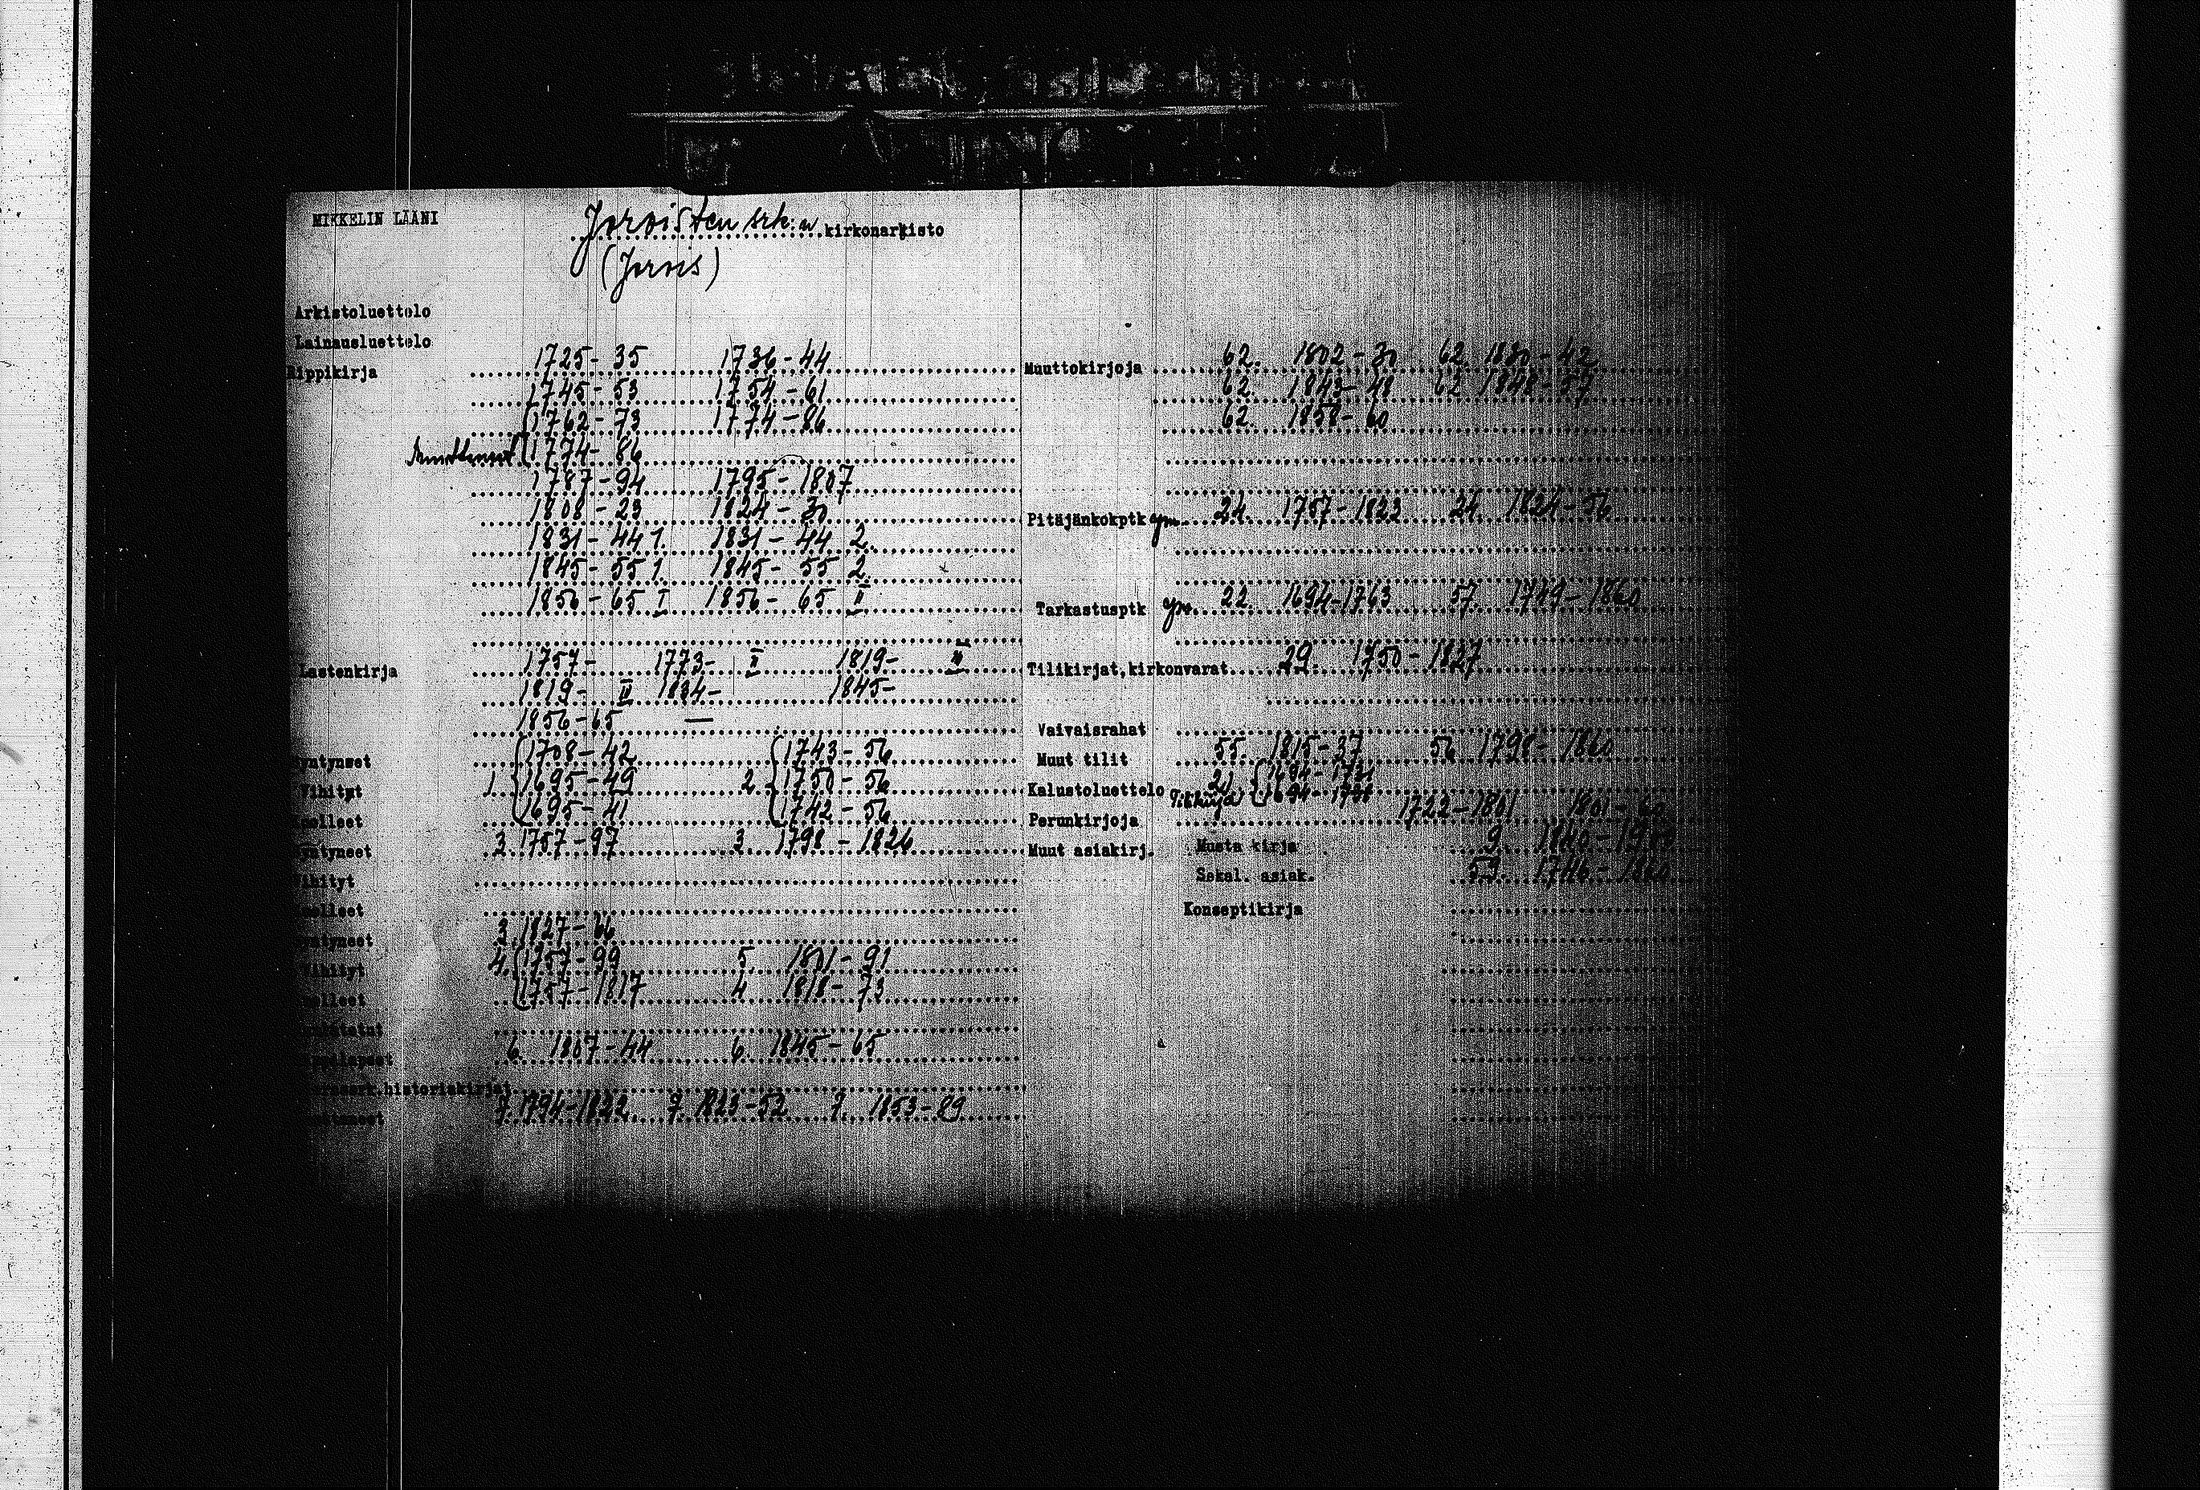 MIKKELIN LÄÄNI
Joroisten srk:n kirkonarkisto
(Jorois)
Arkistoluettelo
Lainausluettelo
Rippikirja 1725-35 1736-44
1745-53 1754-61
1762-73 1774-86
1774-86
1787-94 1795-1807
1808-23 1824-30
1831-44 1. 1831-44 2.
1845-55 1. 1845-55 2.
1856-65 I 1856-65 II
Lastenkirja 1757- 1773- II 1819-
1819- III 1834- 1845-
1856-65 —
Syntyneet 1708-42 1743-56
Vihityt 1. 1695-49 2. 1750-56
Kuolleet 1695-41 1742-56
Syntyneet 3. 1757-97 3. 1798-1826
Vihityt
Kuolleet
Syntyneet 3. 1827-66
Vihityt 4. 1757-99 5. 1801-91
Kuolleet 1757-1817 4. 1818-73
6. 1807-44 6. 1845-65
historiakirjat
7. 1794-1822 7. 1823-52 7. 1853-89
Muuttokirjoja 62. 1802-30 62. 1830-42
62. 1843-48 62. 1848-57
62. 1858-60
Pitäjänkokptk ym. 24. 1757-1823 24. 1824-56
Tarkastusptk ym. 22. 1694-1763 57. 1749-1860
Tilikirjat,kirkonvarat 29. 1750-1827
Vaivaisrahat
Muut tilit 55. 1815-37 56. 1798-1860
Kalustoluettelo
Perunkirjoja 1722-1801 1801-60
Muut asiakirj. Musta kirja 9.
Sekal. asiak. 59. 1746-1860
Konseptikirja